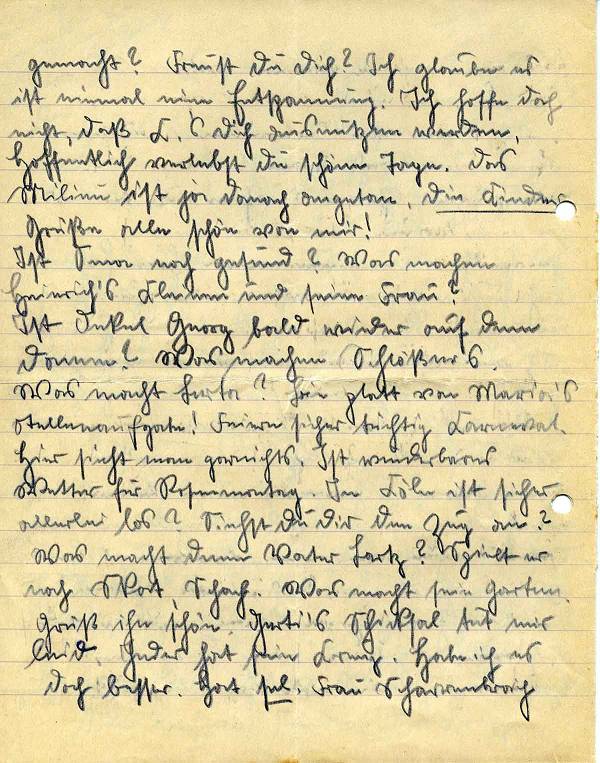 gemacht? Freust du dich? Ich glaube es
ist einmal eine Entspannung. Ich hoffe doch
nicht, daß K.'s dich ausnutzen werden.
Hoffentlich verlebst du schöne Tage. Das
Milieu ist ja danach angetan, die Kinder
Grüße alle schön von mir!
Ist Oma noch gesund? Was machen
Heinrich's Kleinen und seine Frau?
Ist Onkel Georg bald wieder auf dem
Damm? Was machen Schlößer's.
Was macht Herta? Bin platt von Maria's
Stellenaufgabe! Feiern sicher tüchtig Karneval.
Hier sieht man garnichts. Ist wunderbares
Wetter für Rosenmontag. In Köln ist sicher
allerlei los? Siehst du dir den Zug an?
Was macht denn Vater? Spielt er
noch Skat, Schach. Was macht sein Garten.
Grüß ihn schön. Gerti's Schiksal tut mir
leid. Jeder hat sein Kreuz. Habe ich es
doch besser. Hat sel. Frau Scharrenbroich